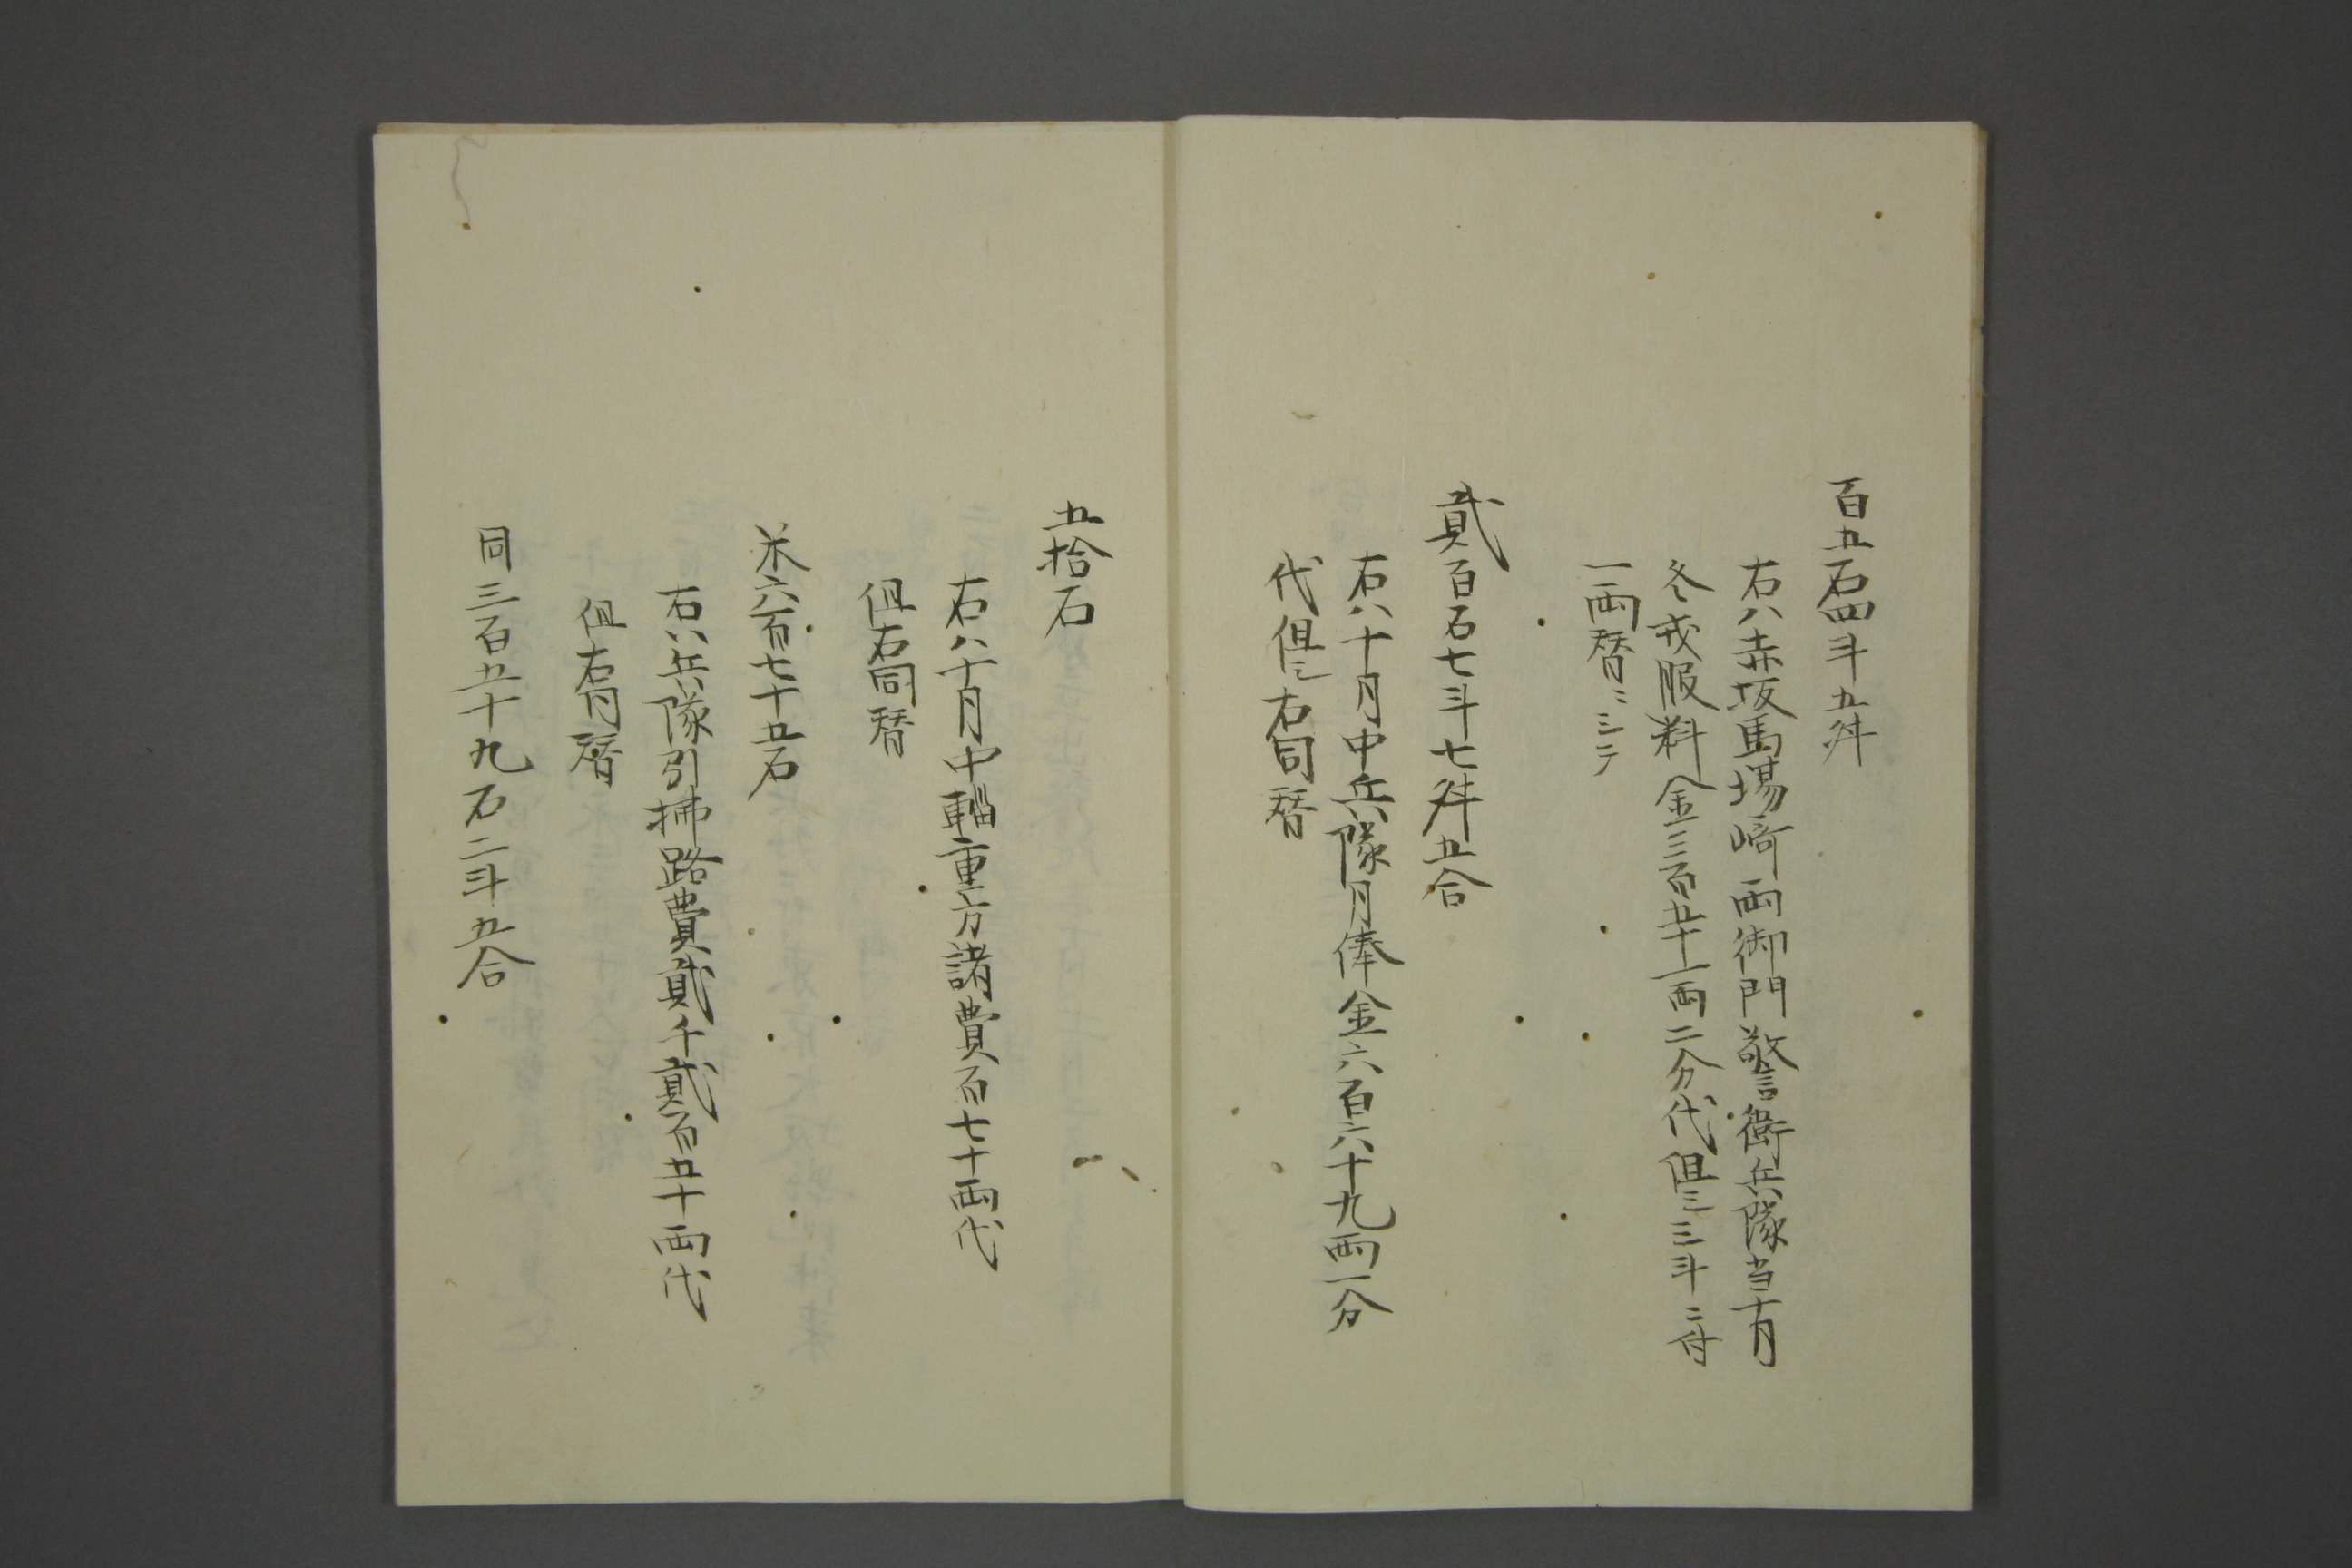 百五石四斗五舛
右ハ赤坂馬場﨑両御門警衛兵隊当十月
冬戎服料金三百五十一両二分代但シ三斗ニ付
一両替ニシテ
貳百石七斗七舛五合
右ハ十月中兵隊月俸金六百六十九両一分
代但シ右同替
五拾石
右ハ十月中輜重方諸費百七十両代
但右同替
米六百七十五石
右ハ兵隊引拂路費貳千貳百五十両代
但右同替
同三百五十九石二斗五合